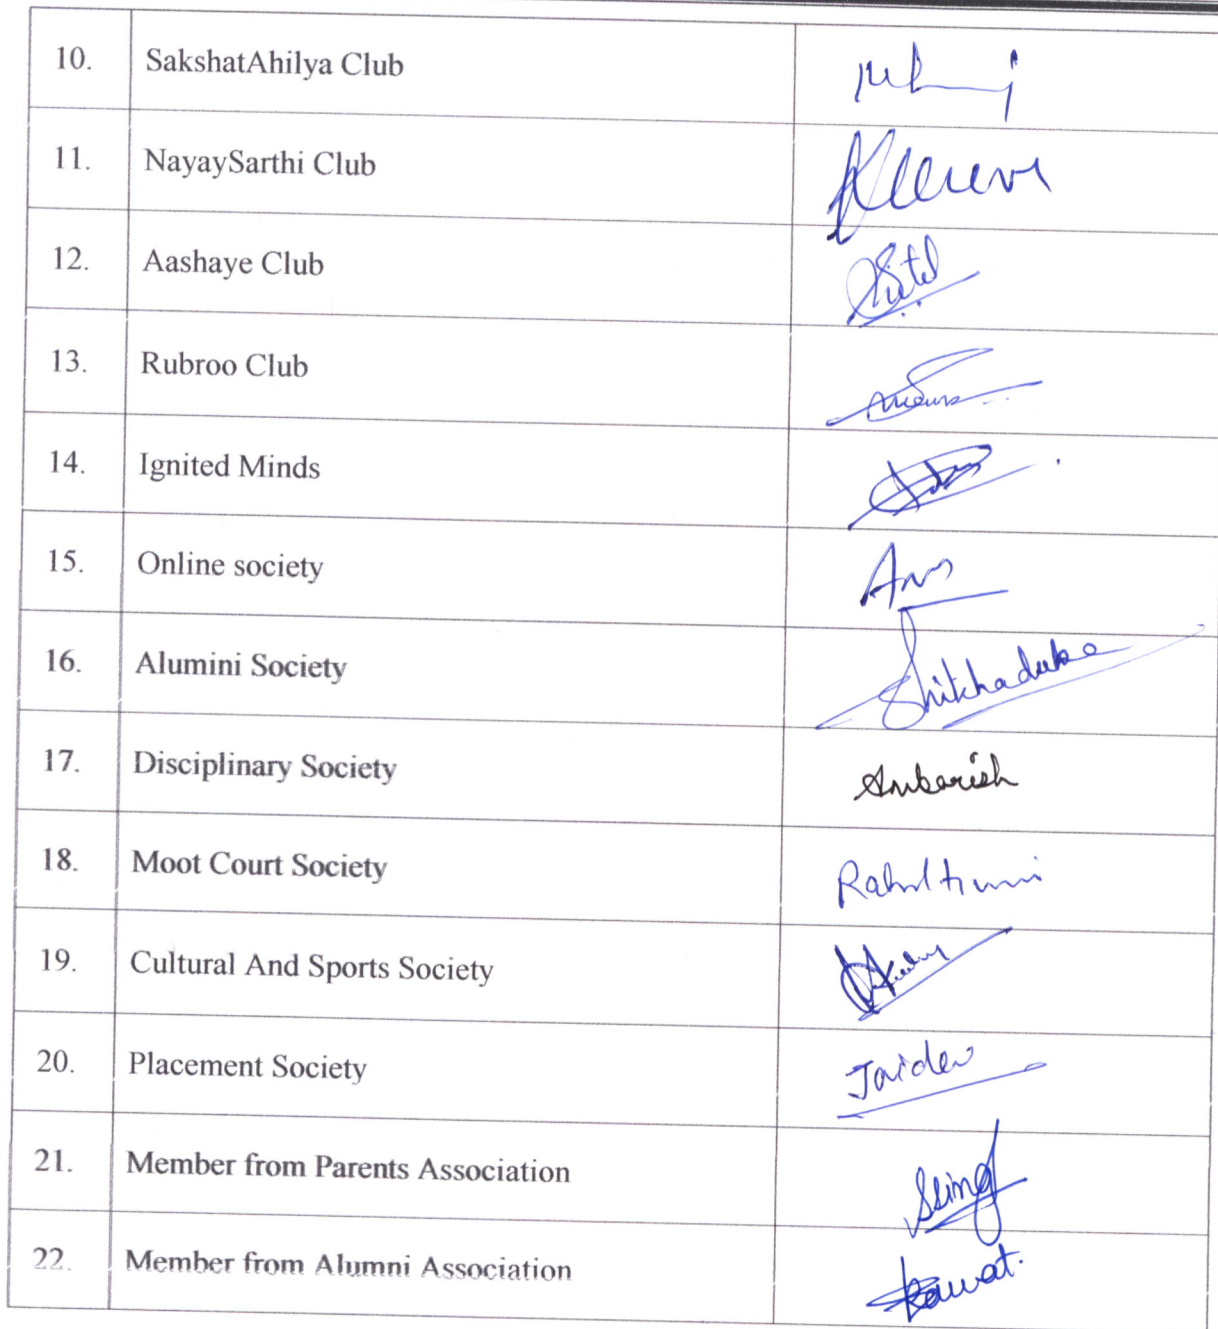 10. SakshatAhilya Club
11. NayaySarthi Club
12. Aashaye Club
13. Rubroo Club
14. Ignited Minds
15. Online society
16. Alumini Society
17. Disciplinary Society Ambarish
18. Moot Court Society Rahul
19. Cultural And Sports Society
20. Placement Society Jaidev
21. Member from Parents Association
22. Member from Alumni Association Rawat.